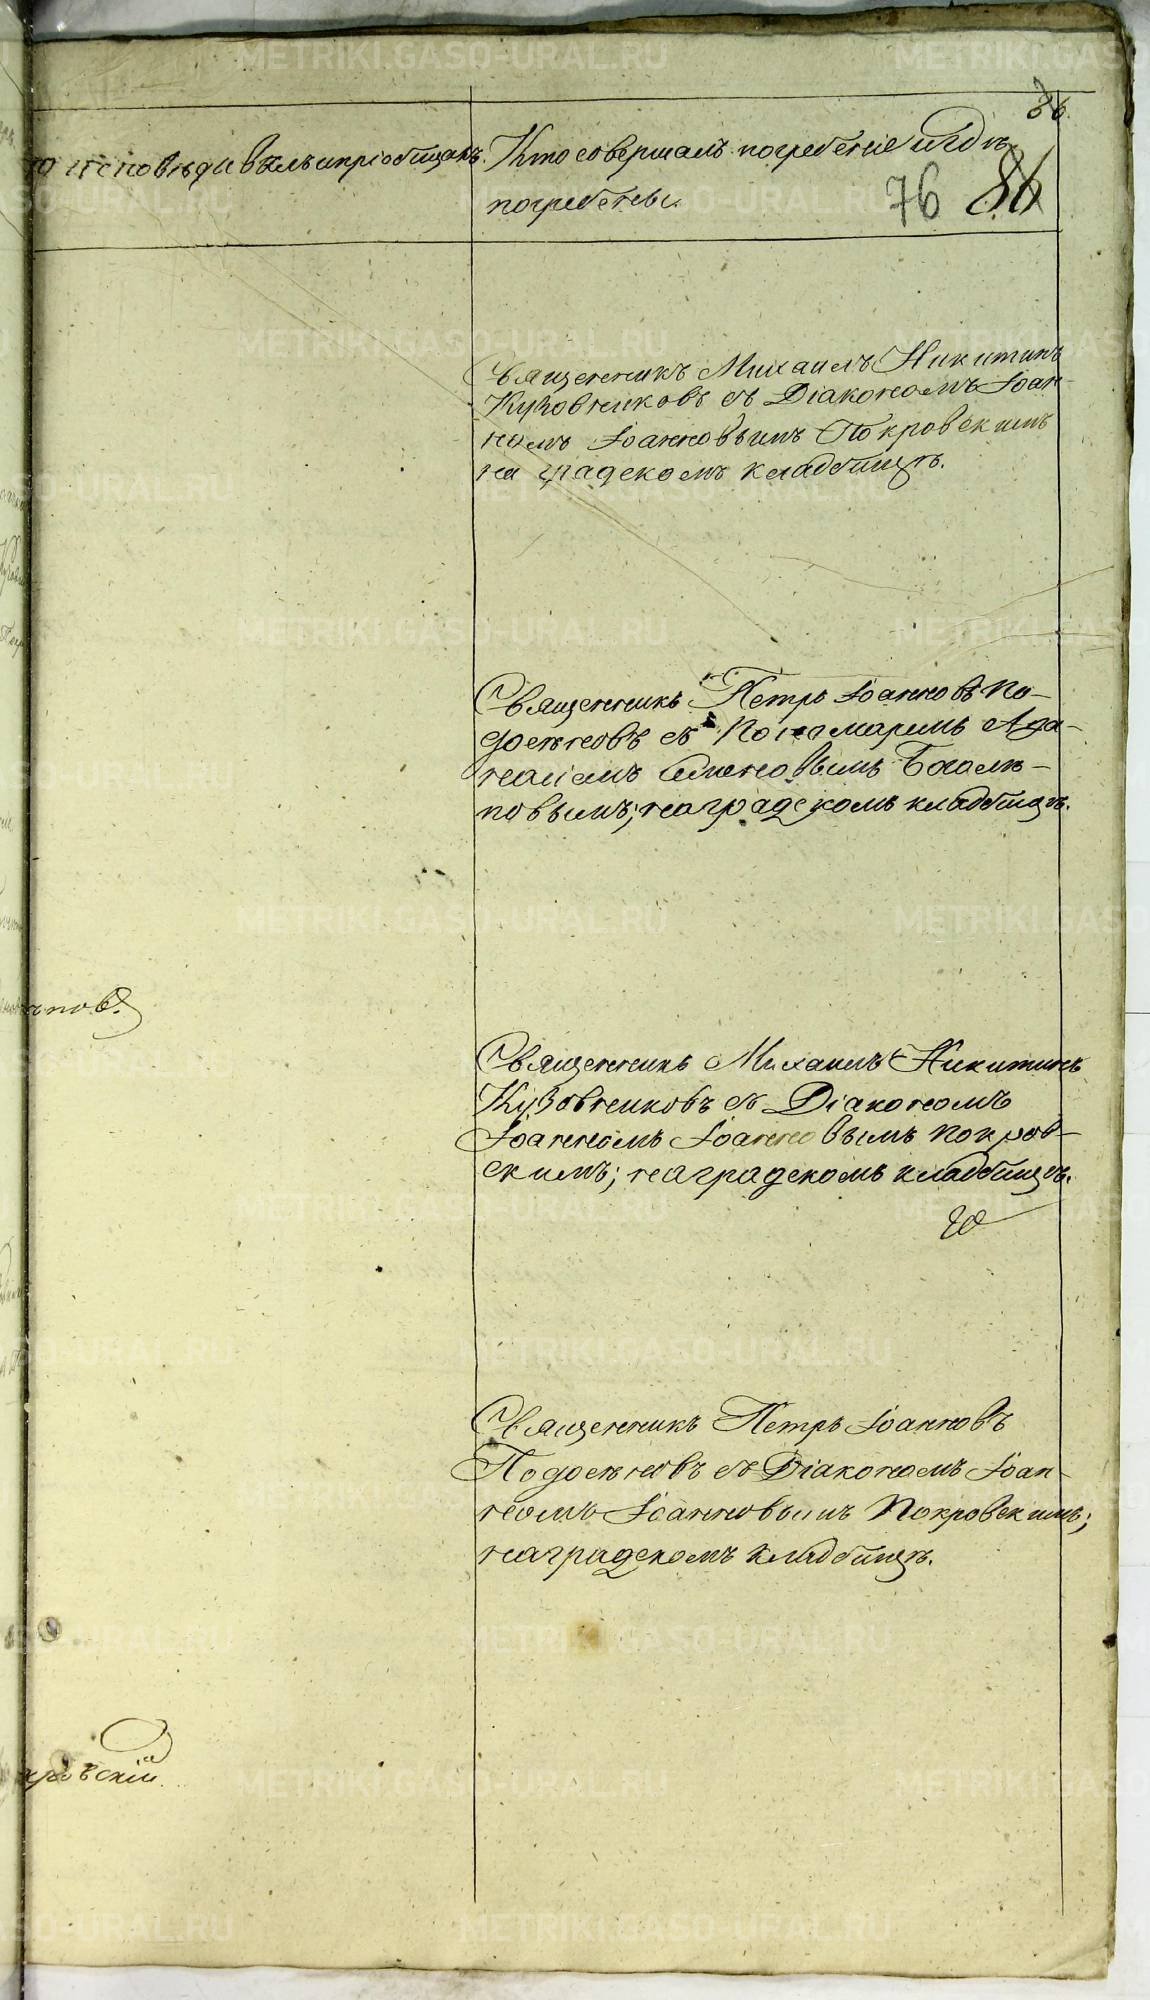 86.
исповѣдывалъ и пріобщалъ.
Кто совершалъ погребеніе и гдѣ
погребены.
76 86
Священникъ Михаилъ Никитинъ
Кузовниковъ съ Діакономъ Іоан-
номъ Іоанновымъ Покровскимъ
на градскомъ кладбищѣ.
Священникъ Петръ Іоанновъ По-
досеновъ съ Пономаремъ
новымъ; на градскомъ кладбищѣ.
повъ.
Священникъ Михаилъ Никитинъ
Кузовниковъ съ Діакономъ
Іоанномъ Іоанновымъ Покров-
скимъ; на градскомъ кладбищѣ.
Священникъ Петръ Іоанновъ
Подосеновъ съ Діакономъ Іоан-
номъ Іоанновымъ Покровскимъ;
на градскомъ кладбищѣ.
кровскій.
METRIKI.GASO-URAL.RU